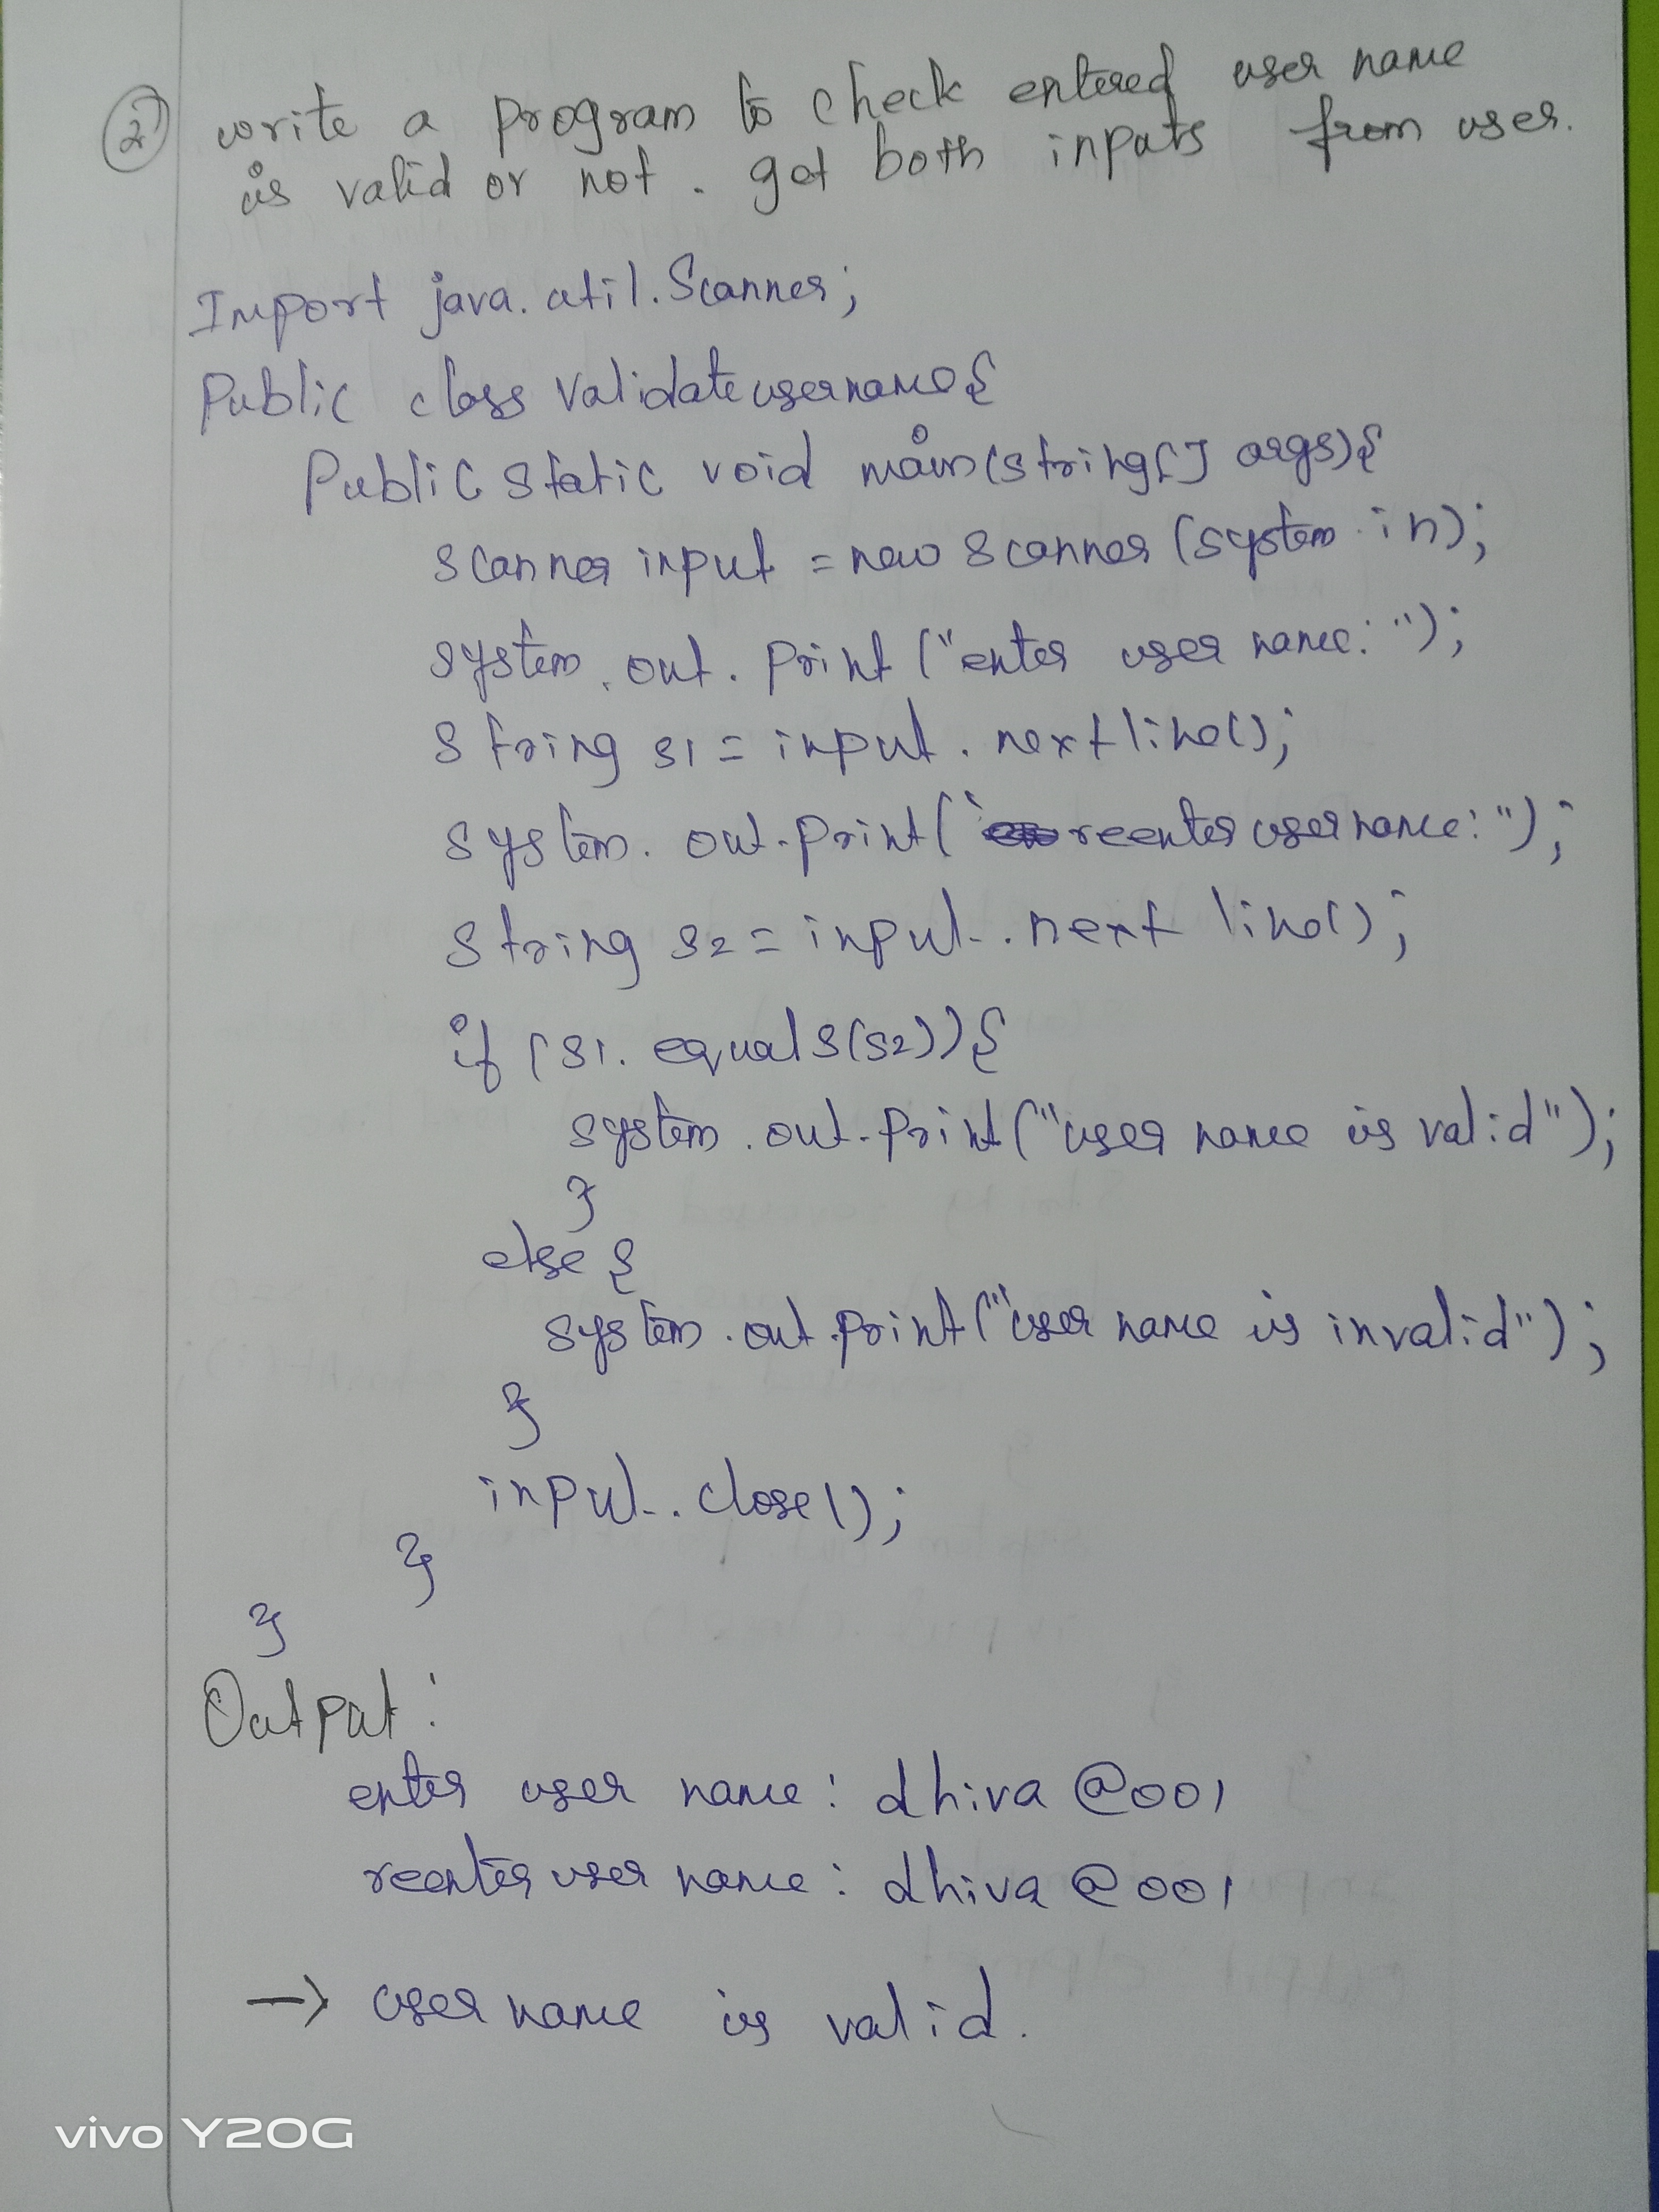 2) write a program to check entered user name
is valid or not. get both inputs from user.
Import java.util.Scanner;
Public class validateusername{
Public static void main(string[] args){
scanner input = new scanner (system.in);
system.out.print("enter user name:");
string s1 = input.nextline();
system.out.print("reenter username:");
string s2 = input.next line();
if (s1.equals(s2)){
system.out.print("user name is valid");
}
else {
system.out.print("user name is invalid");
}
input.close();
}
}
Output:
enter user name: dhiva@001
reenter user name: dhiva@001
→ user name is valid.
vivo Y20G